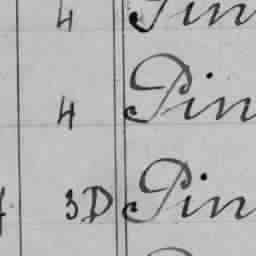 4 Pin
4 Pin
3D Pin